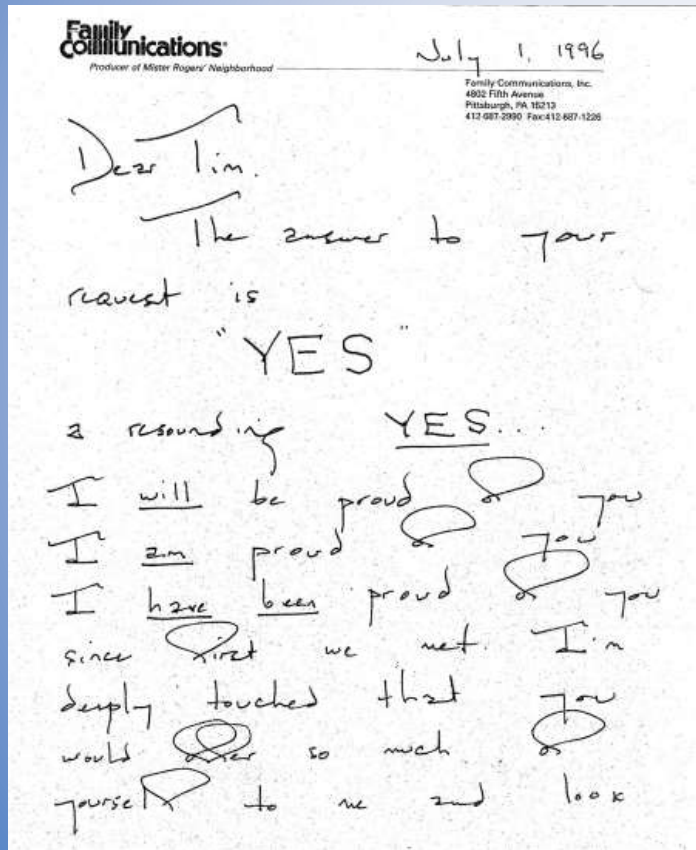 Family
Communications
July 1, 1996
Producer of Mister Rogers' Neighborhood
Family Communications, Inc.
4802 Fifth Avenue
Pittsburgh, PA 15213
412-687-2990 Fax:412-687-1226
Dear Tim.
The answer to your
request is
"YES"
a resounding YES...
I will be proud of you
I am proud of you
I have been proud of you
since first we met. I'm
deeply touched that you
would offer so much of
yourself to me and look